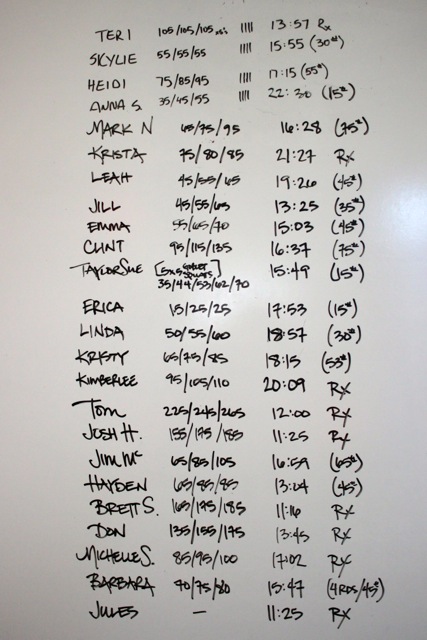 TERI 105/105/105 |||| 13:57 Rx
SKYLIE 55/55/55 |||| 15:55 (30#)
HEIDI 75/85/95 |||| 17:15 (55#)
ANNA S. 35/45/55 |||| 22:30 (15#)
MARK N 65/75/95 16:28 (75#)
KRISTA 75/80/85 21:27 Rx
LEAH 45/55/65 19:26 (45#)
JILL 45/55/65 13:25 (35#)
EMMA 55/65/70 15:03 (45#)
CLINT 95/115/135 16:37 (75#)
TAYLOR SUE [5x5 SQUATS] 15:49 (15#)
35/44/53/62/70
ERICA 15/25/25 17:53 (15#)
LINDA 50/55/60 18:57 (30#)
KRISTY 65/75/85 18:15 (53#)
KIMBERLEE 95/105/110 20:09 Rx
TOM 225/245/265 12:00 Rx
JOSH H. 155/175/185 11:25 Rx
JIM Mc 65/85/105 16:59 (65#)
HAYDEN 65/85/85 13:04 (45#)
BRETT S. 165/175/185 11:16 Rx
DON 135/155/175 13:45 Rx
MICHELLE S. 85/95/100 17:02 Rx
BARBARA 70/75/80 15:47 (4 RDS/45#)
JULES — 11:25 Rx